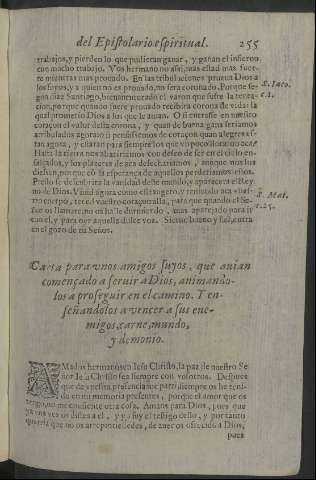 del Epistolario espiritual. 255
trabajos, y pierden lo que pudieran ganar, y ganan el infierno
con mucho trabajo. Vos hermano no assi, mas estad mas fuer-
te mientras mas prouado. En las tribulaciones prueua Dios a
los suyos, y a quien no es prouado, no sera coronado. Porque se-
gun dize Santiago, bienauenturado el varon que sufre la tenta-
S. Iaco.
cion, porque quando fuere prouado recibira corona de vida: la
c.1.
qual prometio Dios a los que le aman. O si entrasse en nuestro
coraçon el valor desta corona, y quan de buena gana seriamos
atribulados agora: o si pensassemos de coraçon quan alegres es-
tan agora, y estaran para siempre los que un poco lloraron aca
Hasta la tierra nos abaxariamos con desseo de ser en el cielo en-
salçados, y los plazeres de aca desechariamos, aunque nos los
diessen, porque con la esperança de aquellos perderiamos estos.
Presto se deshara la vanidad deste mundo, y aparecera el Rey-
no de Dios. Viuid agora como estrangero, y teniendo aca vues-
S. Mat.
tro cuerpo, tened vuestro coraçon alla, para que quando el Se-
c.25.
ñor os llamare, no os halle durmiendo, mas aparejado para ir
con el, y para oyr aquella dulce voz. Sieruo bueno y fiel, entra
en el gozo de tu Señor.
Carta para vnos amigos suyos, que auian
començado a seruir a Dios, animando-
los a proseguir en el camino. Y en-
señandolos a vencer a sus ene-
migos, carne, mundo,
y demonio.
AMados hermanos en Iesu Christo, la paz de nuestro Se
ñor Iesu Christo sea siempre con vosotros. Despues
que de vuestra presencia me parti siempre os he teni-
do en mi memoria presentes, porque el amor que os
tengo, no me consiente otra cosa. Amaos para Dios, pues que
ya una vez os distes a el, y yo soy el testigo dello, y por tanto
querria que no os arrepintiessedes, de auer os ofrecido a Dios,
pues